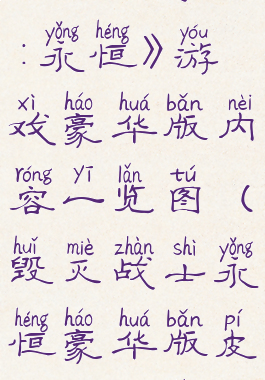 yǒng héng yóu
：永恒》游
xì háo huá bǎn nèi
戏豪华版内
róng yī lǎn tú
容一览图（
huǐ miè zhàn shì yǒng
毁灭战士永
héng háo huá bǎn pí
恒豪华版皮